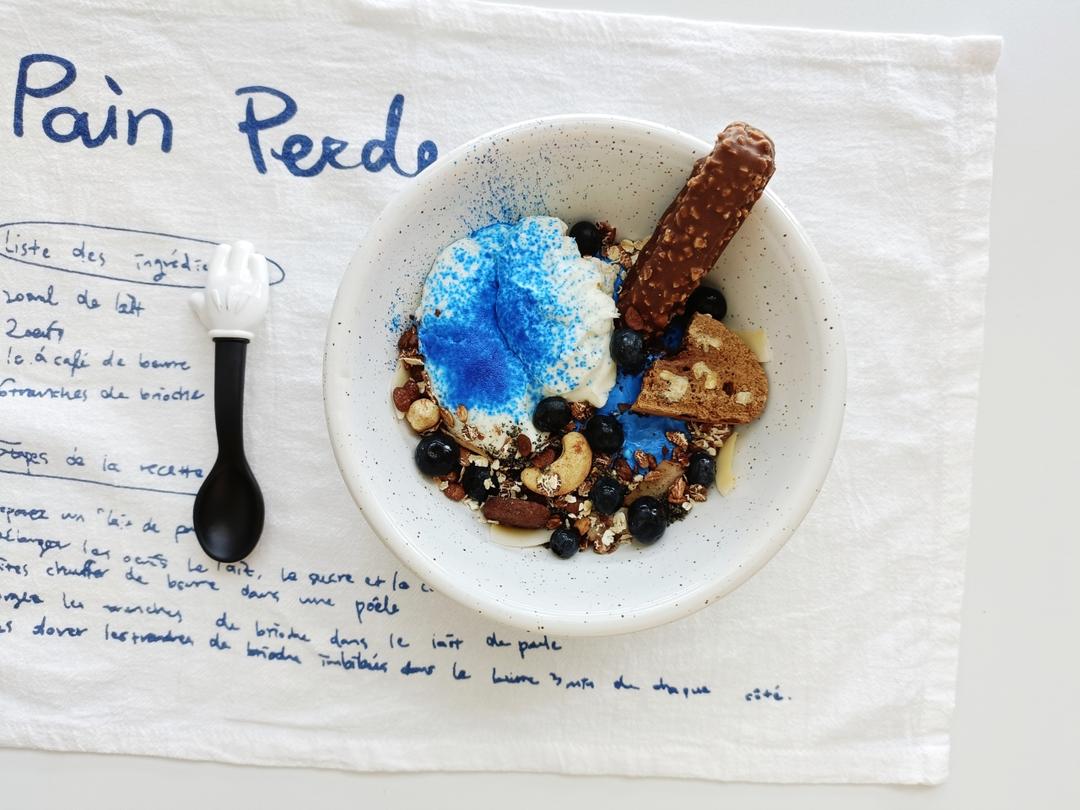 Pain Perde
Liste des ingrédie
200ml de lait
2 oeufs
1c à café de beurre
6 tranches de brioche
Étapes de la recette
un lait de
les oeufs le lait, le sucre et la c
chauffer de beurre dans une poêle
les tranches de brioche dans le lait de
les tranches de brioche imbibées dans le beurre 3 min de chaque côté.